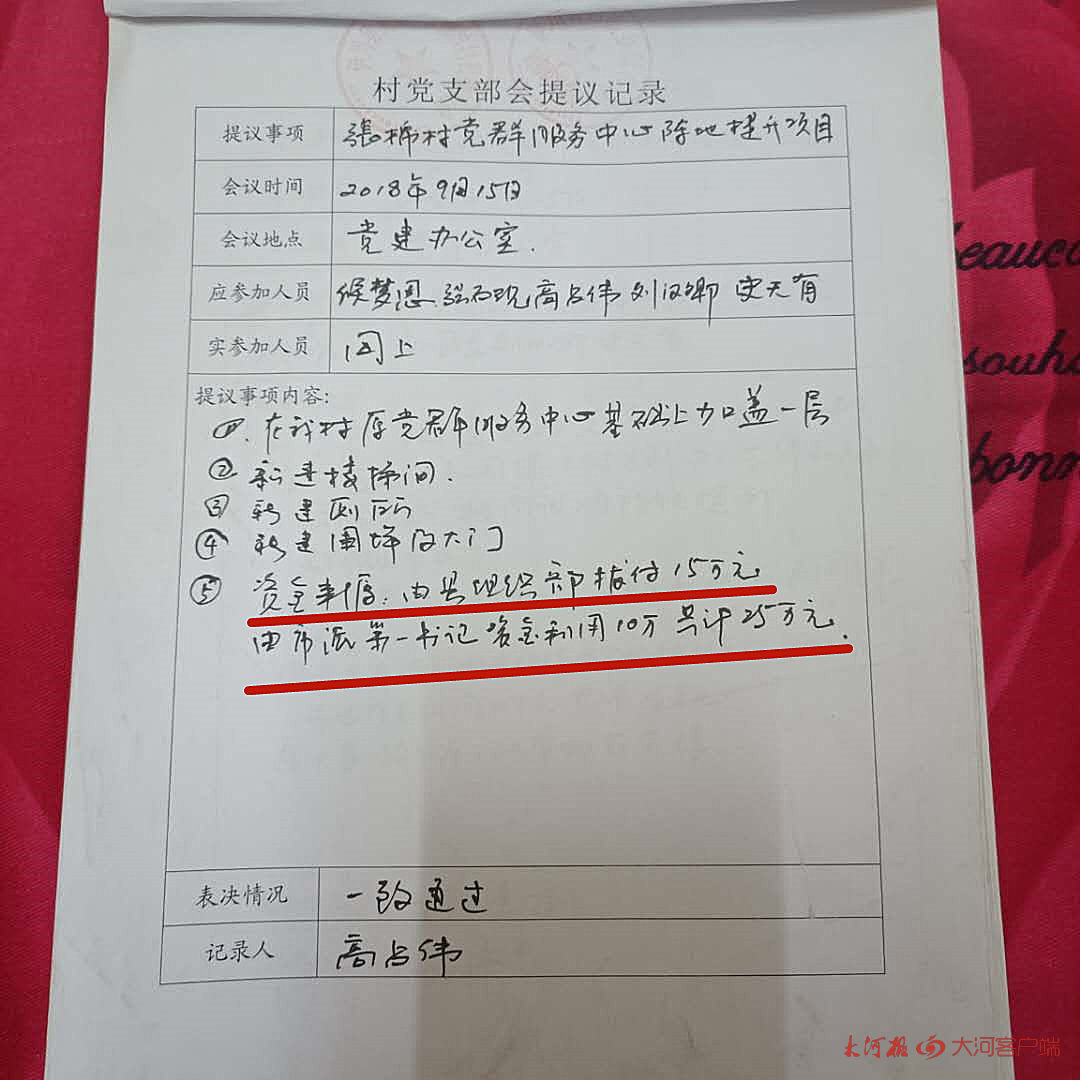 村党支部会提议记录
提议事项 张柿村党群服务中心阵地提升项目
会议时间 2018年9月15日
会议地点 党建办公室.
应参加人员 侯梦恩 高占伟 刘汉卿 史天有
实参加人员 同上
提议事项内容:
①.在我村原党群服务中心基础上加盖一层
② 新建楼梯间.
③ 新建厕所
④ 新建围墙及大门
⑤ 资金来源:由县组织部拨付15万元
由市派第一书记资金利用10万共计25万元.
表决情况 一致通过
记录人 高占伟
beauco
souha
bonn
大河报 大河客户端